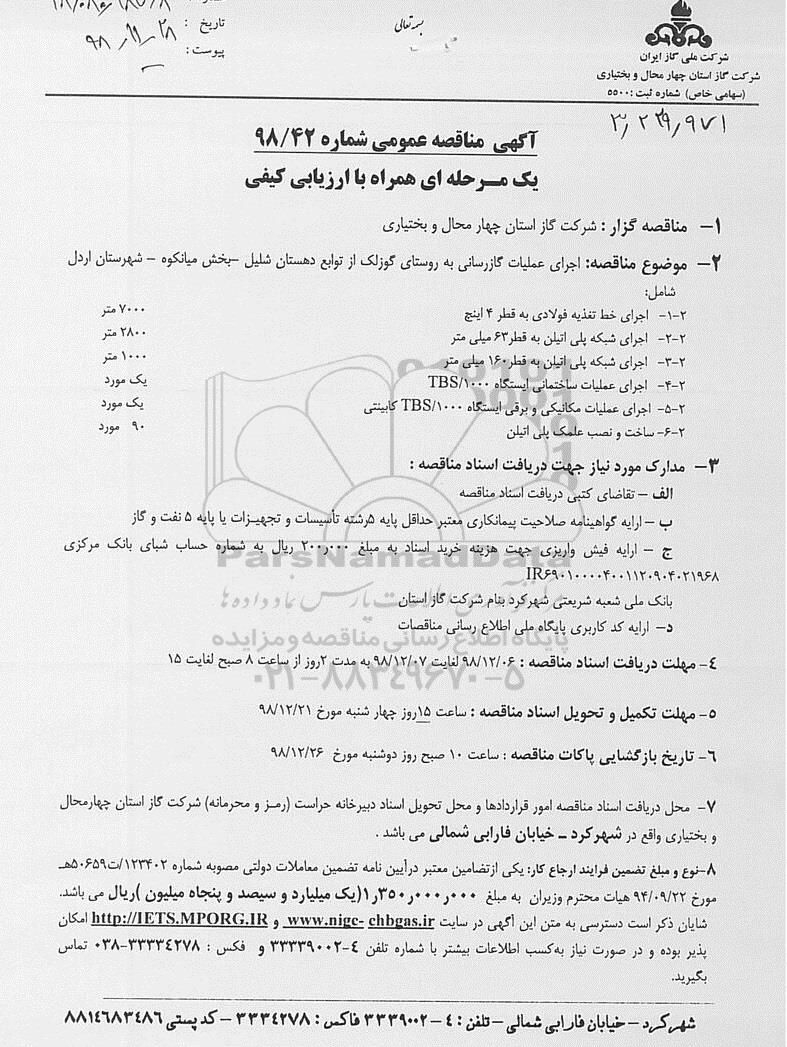 بسمه تعالی
تاریخ : ۹۸/۱۱/۲۸
پیوست : –
شرکت ملی گاز ایران
شرکت گاز استان چهار محال و بختیاری
(سهامی خاص) شماره ثبت : ۵۵۰۰
آگهی مناقصه عمومی شماره ۹۸/۴۲
یک مرحله ای همراه با ارزیابی کیفی
۱– مناقصه گزار : شرکت گاز استان چهار محال و بختیاری
۲– موضوع مناقصه: اجرای عملیات گازرسانی به روستای گوزلک از توابع دهستان شلیل –بخش میانکوه – شهرستان اردل
شامل:
۲-۱- اجرای خط تغذیه فولادی به قطر ۴ اینچ ۷۰۰۰ متر
۲-۲- اجرای شبکه پلی اتیلن به قطر۶۳ میلی متر ۲۸۰۰ متر
۲-۳- اجرای شبکه پلی اتیلن به قطر۱۶۰ میلی متر ۱۰۰۰ متر
۲-۴- اجرای عملیات ساختمانی ایستگاه TBS/۱۰۰۰ یک مورد
۲-۵- اجرای عملیات مکانیکی و برقی ایستگاه TBS/۱۰۰۰ کابینتی یک مورد
۲-۶- ساخت و نصب علمک پلی اتیلن ۹۰ مورد
۳– مدارک مورد نیاز جهت دریافت اسناد مناقصه :
الف – تقاضای کتبی دریافت اسناد مناقصه
ب – ارایه گواهینامه صلاحیت پیمانکاری معتبر حداقل پایه ۵رشته تأسیسات و تجهیزات یا پایه ۵ نفت و گاز
ج – ارایه فیش واریزی جهت هزینه خرید اسناد به مبلغ ۲۰۰٫۰۰۰ ریال به شماره حساب شبای بانک مرکزی
IR۶۹۰۱۰۰۰۰۴۰۰۱۱۲۰۹۰۴۰۲۱۹۶۸
بانک ملی شعبه شریعتی شهرکرد بنام شرکت گاز استان
د- ارایه کد کاربری پایگاه ملی اطلاع رسانی مناقصات
ParsNamadData
پایگاه اطلاع رسانی مناقصه و مزایده
۰۲۱-۸۸۳۴۹۶۷۰-۵
۴- مهلت دریافت اسناد مناقصه : ۹۸/۱۲/۰۶ لغایت ۹۸/۱۲/۰۷ به مدت ۲روز از ساعت ۸ صبح لغایت ۱۵
۵- مهلت تکمیل و تحویل اسناد مناقصه : ساعت ۱۵روز چهار شنبه مورخ ۹۸/۱۲/۲۱
۶- تاریخ بازگشایی پاکات مناقصه : ساعت ۱۰ صبح روز دوشنبه مورخ ۹۸/۱۲/۲۶
۷- محل دریافت اسناد مناقصه امور قراردادها و محل تحویل اسناد دبیرخانه حراست (رمز و محرمانه) شرکت گاز استان چهارمحال
و بختیاری واقع در شهرکرد – خیابان فارابی شمالی می باشد .
۸-نوع و مبلغ تضمین فرایند ارجاع کار: یکی ازتضامین معتبر درآیین نامه تضمین معاملات دولتی مصوبه شماره ۱۲۳۴۰۲/ت۵۰۶۵۹هـ
مورخ ۹۴/۰۹/۲۲ هیات محترم وزیران به مبلغ ۱٫۳۵۰٫۰۰۰٫۰۰۰(یک میلیارد و سیصد و پنجاه میلیون )ریال می باشد.
شایان ذکر است دسترسی به متن این آگهی در سایت www.nigc- chbgas.ir و http://IETS.MPORG.IR امکان
پذیر بوده و در صورت نیاز به‌کسب اطلاعات بیشتر با شماره تلفن ۴-۳۳۳۳۹۰۰۲ و فکس : ۳۳۳۳۴۲۷۸-۰۳۸ تماس
بگیرید.
شهرکرد – خیابان فارابی شمالی – تلفن : ۴ – ۳۳۳۹۰۰۲ فاکس : ۳۳۳۴۲۷۸ – کد پستی ۸۸۱۴۶۸۳۴۸۶